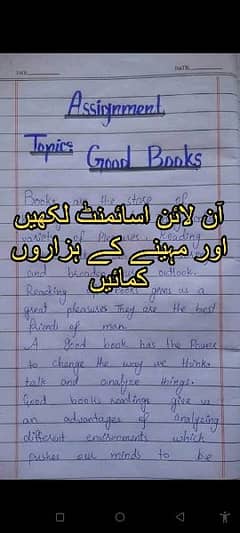 DATE
Assignment
Topic: Good Books
Books are the store of
آن لائن اسائمنٹ لکھیں
variety of pleasures. Reading
اور مہینے کے ہزاروں
and broadens outlook.
کمائیں
Reading books gives us a
great pleasures They are the best
friends of man.
A good book has the
to change the way we think,
talk and analyze things.
Good books readings give us
an advantages of analyzing
different which
pushes our minds to be